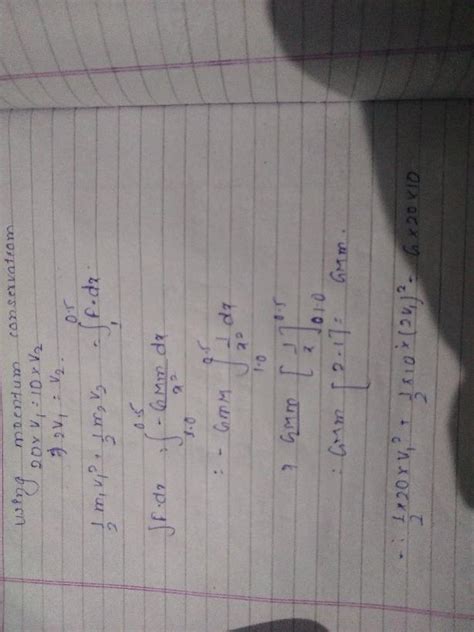 using momentum conservation
20 x V₁ = 10 x V₂
⇒ 2V₁ = V₂.
1/2 m₁V₁² + 1/2 m₂V₂ = ∫₁^0.5 F.dx.
∫F.dx = ∫₁.₀^0.5 -GMm/x² dx
= -GMm ∫₁.₀^0.5 1/x² dx
⇒ GMm [1/x]₁.₀^0.5
= GMm [2-1] = GMm.
∴ 1/2 x 20 x V₁² + 1/2 x 10 x (2V₁)² = G x 20 x 10